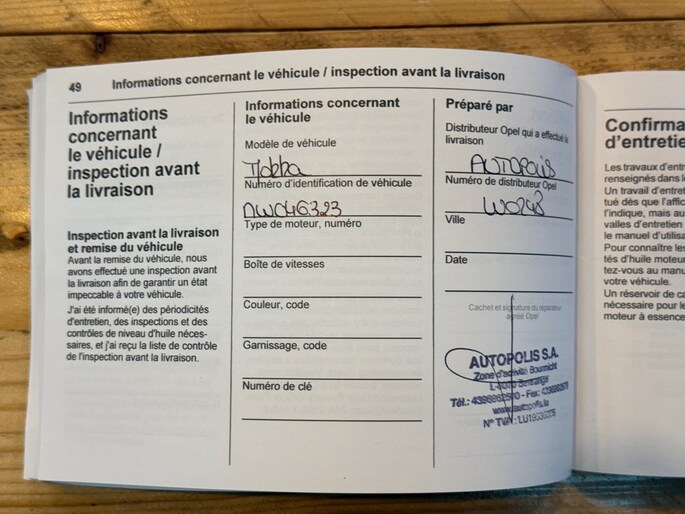 49 Informations concernant le véhicule / inspection avant la livraison
Informations
concernant
le véhicule /
inspection avant
la livraison
Inspection avant la livraison
et remise du véhicule
Avant la remise du véhicule, nous
avons effectué une inspection avant
la livraison afin de garantir un état
impeccable à votre véhicule.
J'ai été informé(e) des périodicités
d'entretien, des inspections et des
contrôles de niveau d'huile néces-
saires, et j'ai reçu la liste de contrôle
de l'inspection avant la livraison.
Informations concernant
le véhicule
Modèle de véhicule
Mokka
Numéro d'identification de véhicule
Type de moteur, numéro
Boîte de vitesses
Couleur, code
Garnissage, code
Numéro de clé
Préparé par
Distributeur Opel qui a effectué la
livraison
AUTOPOLIS
Numéro de distributeur Opel
Ville
Date
Cachet et signature du réparateur
agréé Opel
AUTOPOLIS S.A.
Zone d'activité Bourmicht
L-8070 Bertrange
www.autopolis.lu
Confirma
d'entretie
Les travaux d'entr
renseignés dans l
Un travail d'entret
tué dès que l'affic
l'indique, mais au
valles d'entretien
le manuel d'utilisa
Pour connaître les
tés d'huile moteur
tez-vous au manu
votre véhicule.
Un réservoir de ca
nécessaire pour le
moteur à essence